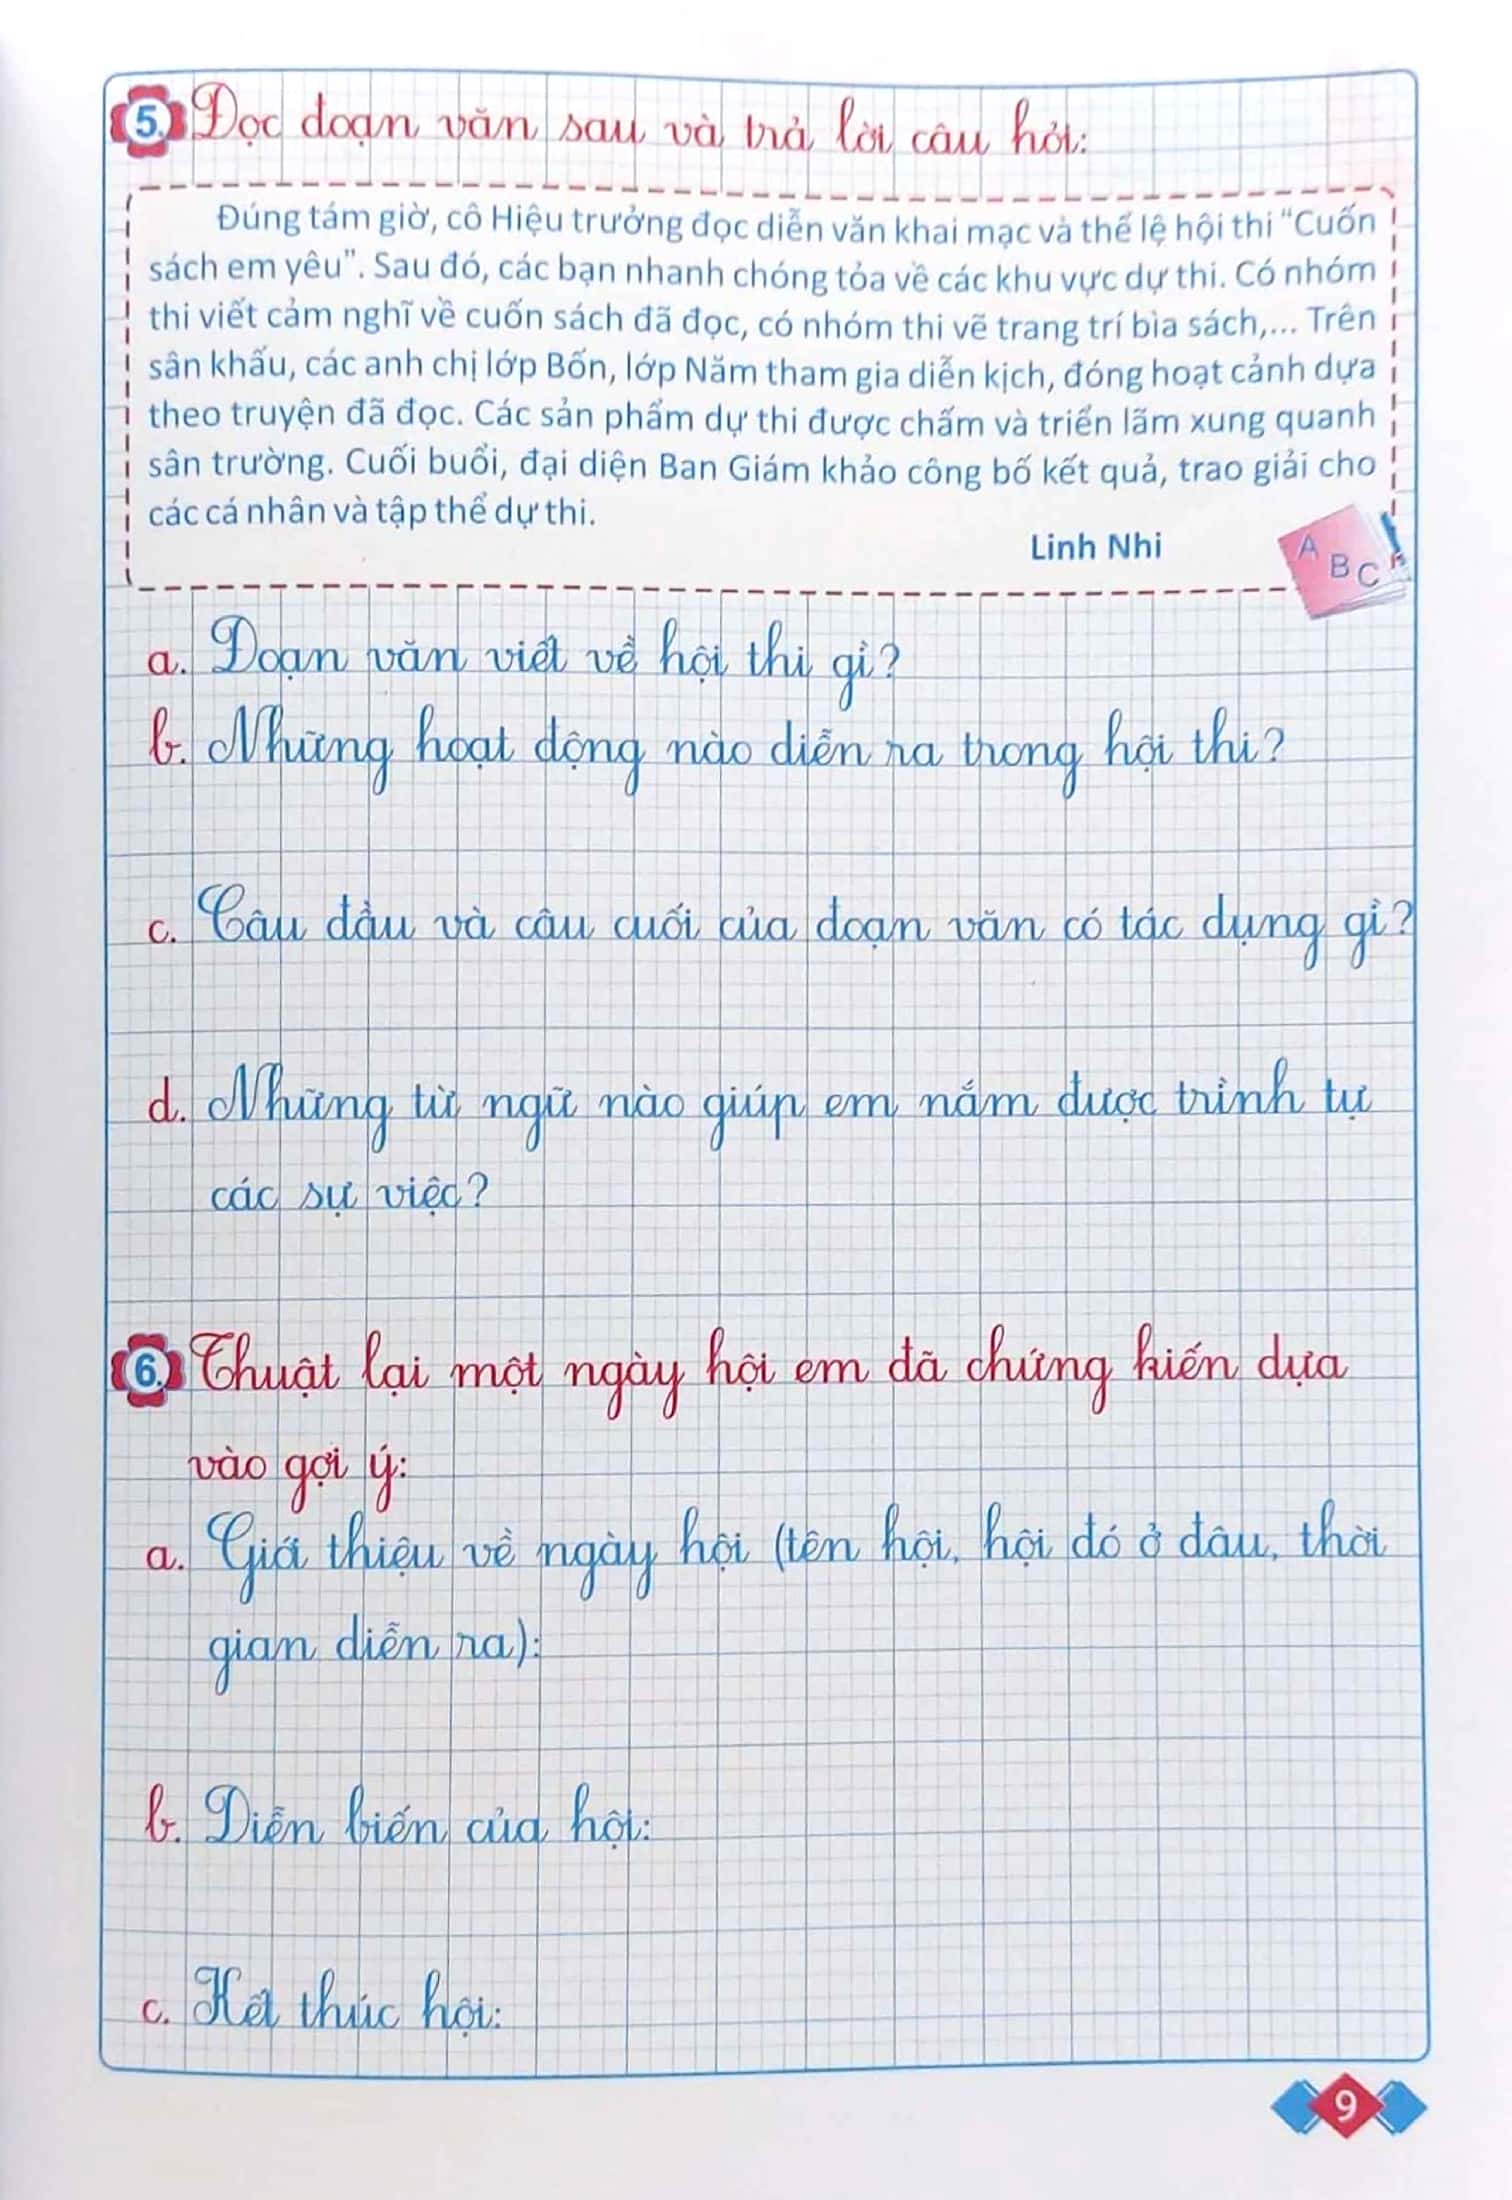 5. Đọc đoạn văn sau và trả lời câu hỏi:
Đúng tám giờ, cô Hiệu trưởng đọc diễn văn khai mạc và thể lệ hội thi "Cuốn
sách em yêu". Sau đó, các bạn nhanh chóng tỏa về các khu vực dự thi. Có nhóm
thi viết cảm nghĩ về cuốn sách đã đọc, có nhóm thi vẽ trang trí bìa sách,... Trên
sân khấu, các anh chị lớp Bốn, lớp Năm tham gia diễn kịch, đóng hoạt cảnh dựa
theo truyện đã đọc. Các sản phẩm dự thi được chấm và triển lãm xung quanh
sân trường. Cuối buổi, đại diện Ban Giám khảo công bố kết quả, trao giải cho
các cá nhân và tập thể dự thi.
Linh Nhi
A B C
a. Đoạn văn viết về hội thi gì?
b. Những hoạt động nào diễn ra trong hội thi?
c. Câu đầu và câu cuối của đoạn văn có tác dụng gì?
d. Những từ ngữ nào giúp em nắm được trình tự
các sự việc?
6. Thuật lại một ngày hội em đã chứng kiến dựa
vào gợi ý:
a. Giới thiệu về ngày hội (tên hội, hội đó ở đâu, thời
gian diễn ra):
b. Diễn biến của hội:
c. Kết thúc hội:
9